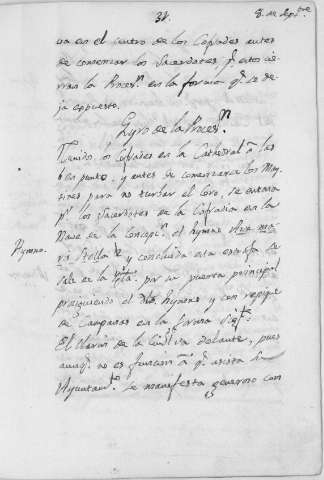 31.
8. de Sep.bre
va en el centro de los Cofrades antes
de comenzar los Sacerdotes q.e estos cie-
rran la Proces.n en la forma q.e se de-
ja expuesto.
Gyro de la Proces.n
Unidos los Cofrades en la Cathedral à las
en punto, y antes de comenzarse los May-
tines para no turbar el Coro, se entona
p.r los Sacerdotes de la Cofradia en la
Nave de la Concepc.n el hymno Ave ma-
Hymno.
ris Stella &c y concluida esta estrofa se
sale de la Igla. por su puerta principal
prosiguiendo el dho hymno y con repique
de Campanas en la forma sig.te
El Clarin de la Ciudad delante, pues
aunq.e no es funcion à q.e asista su
Ayuntam.to se manifesta generoso con